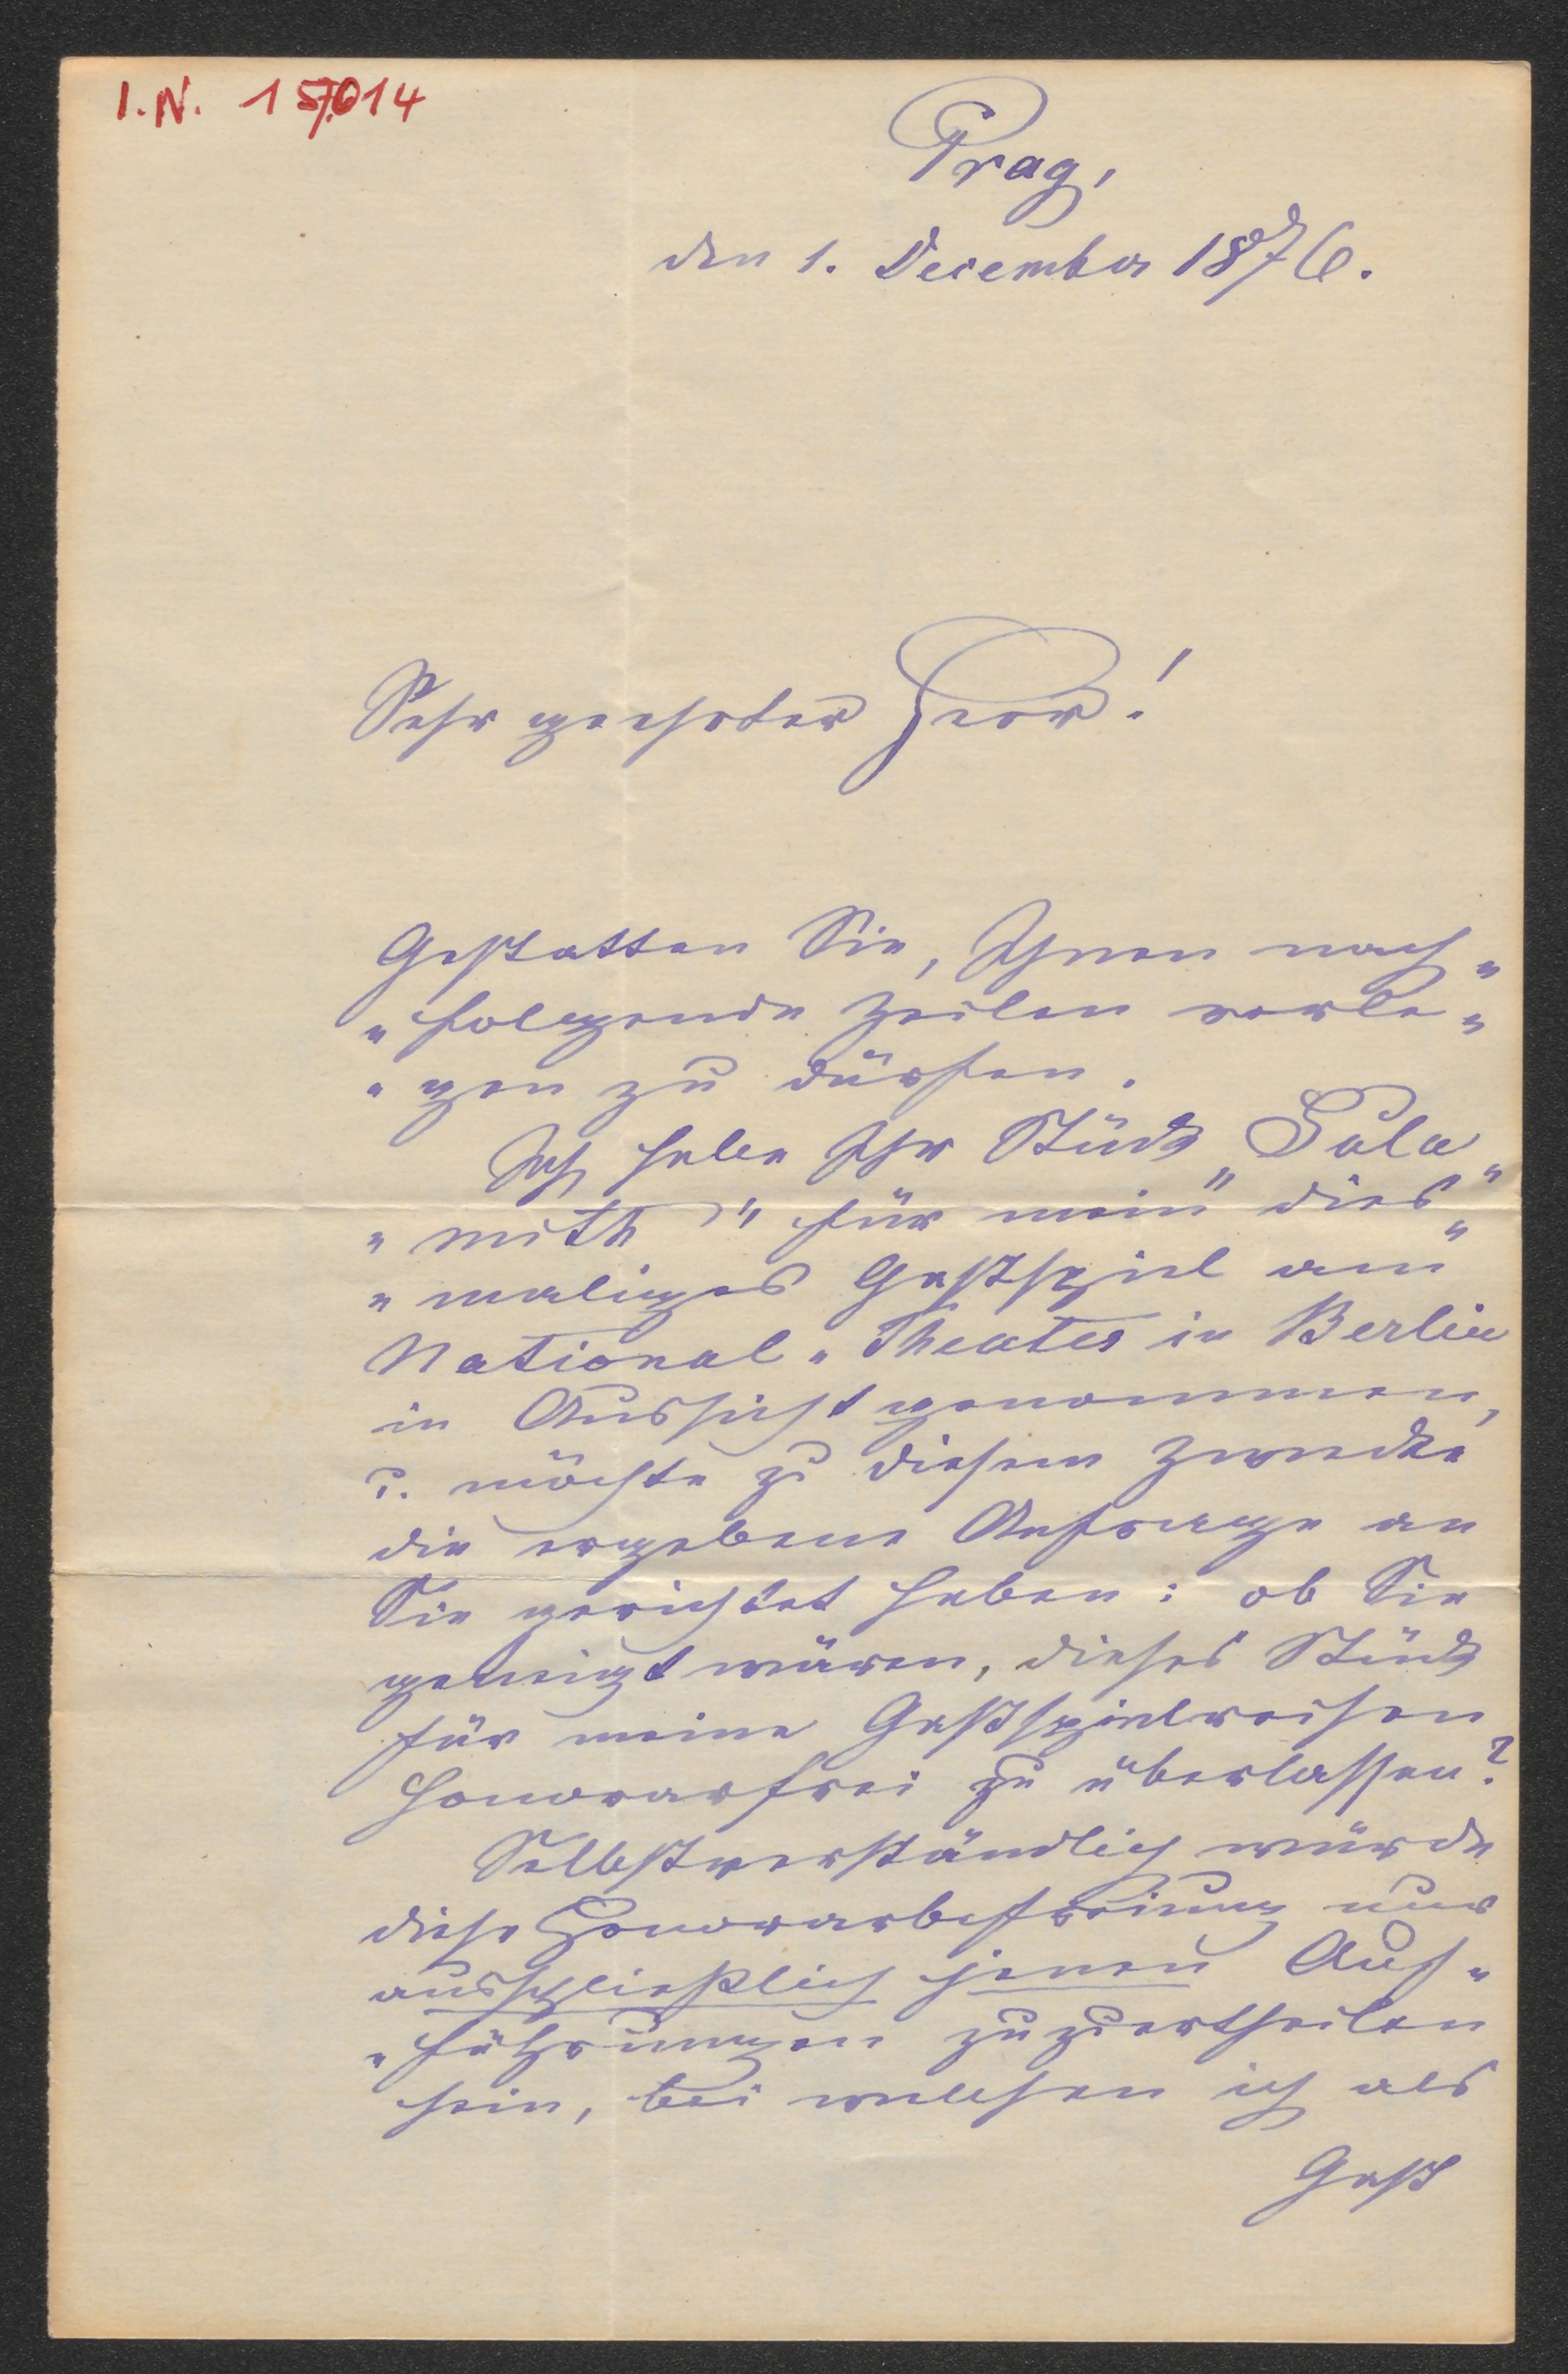 I.N. 157.014
Prag,
den 1. December 1876.
Sehr geehrter Herr!
Gestatten Sie, Ihnen nach„
„folgende Zeilen vorle„
„gen zu dürfen.
Ich habe Ihr Stück „Sula„
„mith" für mein dies„
„maliges Gastspiel am
National„Theater in Berlin
in Aussicht genommen,
u. möchte zu diesem Zwecke
die ergebene Anfrage an
Sie gerichtet haben: ob Sie
geneigt wären, dieses Stück
für meine Gastspielreisen
honorarfrei zu überlassen?
Selbstverständlich würde
diese Honorarbefreiung nur
ausschließlich jenen Auf„
„führungen zuzuertheilen
sein, bei welchen ich als
Gast